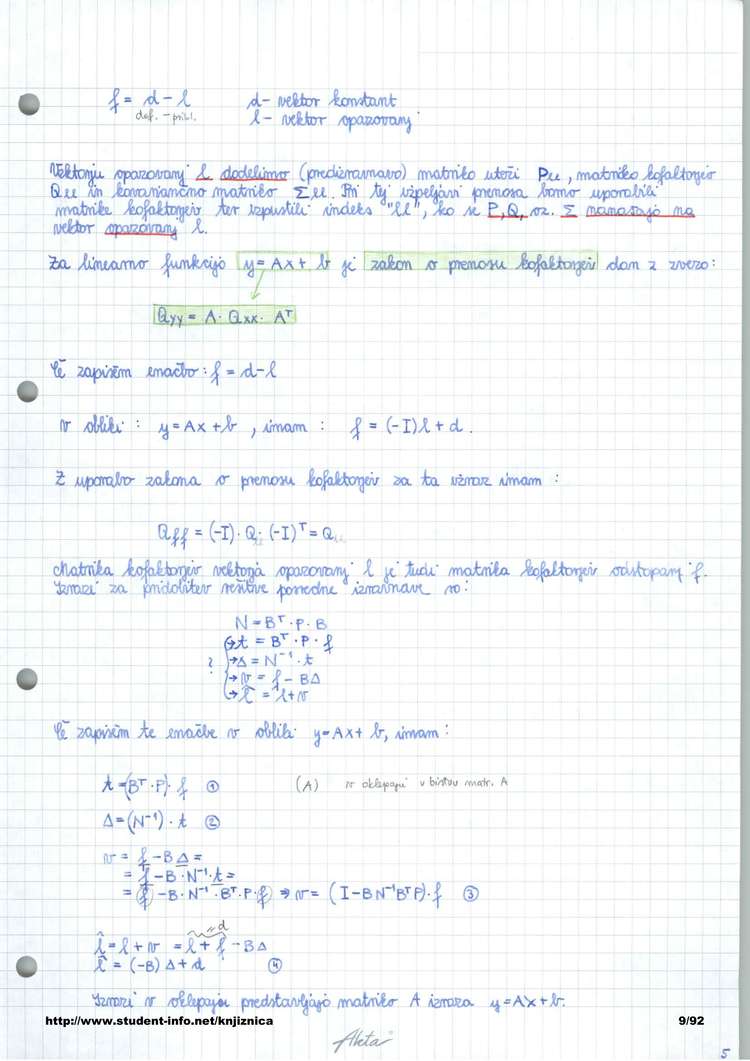 f = d - l    d - vektor konstant
def. - pribl.    l - vektor opazovanj
Vektorju opazovanj l dodelimo (predizravnavo) matriko uteži Pll, matriko kofaktorjev
Qll in kovariančno matriko Σll. Pri tej izpeljavi prenosa bomo uporabili
matrike kofaktorjev ter izpustili indeks "ll", ko se P, Q, oz. Σ nanašajo na
vektor opazovanj l.
Za linearno funkcijo y = Ax + b je zakon o prenosu kofaktorjev dan z zvezo:
Qyy = A · Qxx · Aᵀ
Če zapišem enačbo: f = d - l
v obliki : y = Ax + b , imam : f = (-I)l + d .
Z uporabo zakona o prenosu kofaktorjev za ta izraz imam :
Qff = (-I) · Qll · (-I)ᵀ = Qll
Matrika kofaktorjev vektorja opazovanj l je tudi matrika kofaktorjev odstopanj f.
Izrazi za pridobitev rešitve posredne izravnave so:
N = Bᵀ · P · B
→ t = Bᵀ · P · f
? → Δ = N⁻¹ · t
→ v = f - BΔ
→ l̂ = l + v
Če zapišem te enačbe v obliki y = Ax + b, imam :
t = (Bᵀ · P) · f ①    (A) v oklepaju v bistvu matr. A
Δ = (N⁻¹) · t ②
v = f - BΔ =
= f - B · N⁻¹ · t =
= (f) - B · N⁻¹ · Bᵀ · P · (f) ⇒ v = (I - BN⁻¹BᵀP) · f ③
= d
l̂ = l + v = l + f - BΔ
l̂ = (-B) Δ + d ④
Izrazi v oklepaju predstavljajo matriko A izraza y = AX + b.
http://www.student-info.net/knjiznica    9/92
5